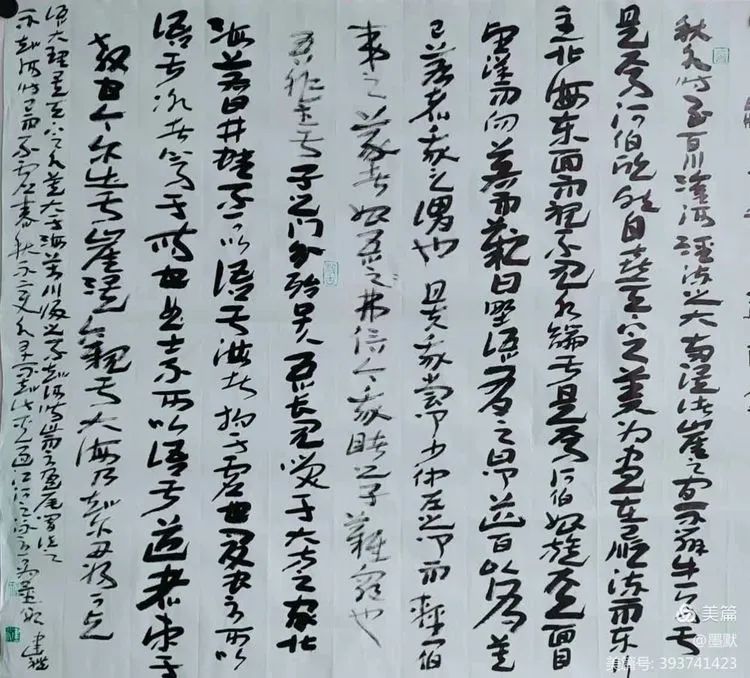 秋水时至百川灌河泾流之大两涘渚崖之间不辩牛马于
是焉河伯欣然自喜天下之美为尽在己顺流而东行
至北海东面而视不见水端于是焉河伯始旋其面目
望洋而向若而叹曰野语有之曰闻道百以为莫
己若者我之谓也且夫我尝闻少仲尼之闻而轻伯
夷之义者始吾之弗信今我睹之子难穷也
吾非至于子之门则殆矣吾长见笑于大方之家北
海若曰井蛙不可以语于海者拘于虚也夏虫不可以
语于冰者笃于时也曲士不可以语于道者束于
教也今尔出于崖涘观于大海乃知尔丑将可与
语大理矣天下之水莫大于海万川归之不知何时止而不盈尾闾泄之
不知何时已而不虚春秋不变水旱不知此其过江河之流不可为量数
美篇
@墨默
美篇号:393741423